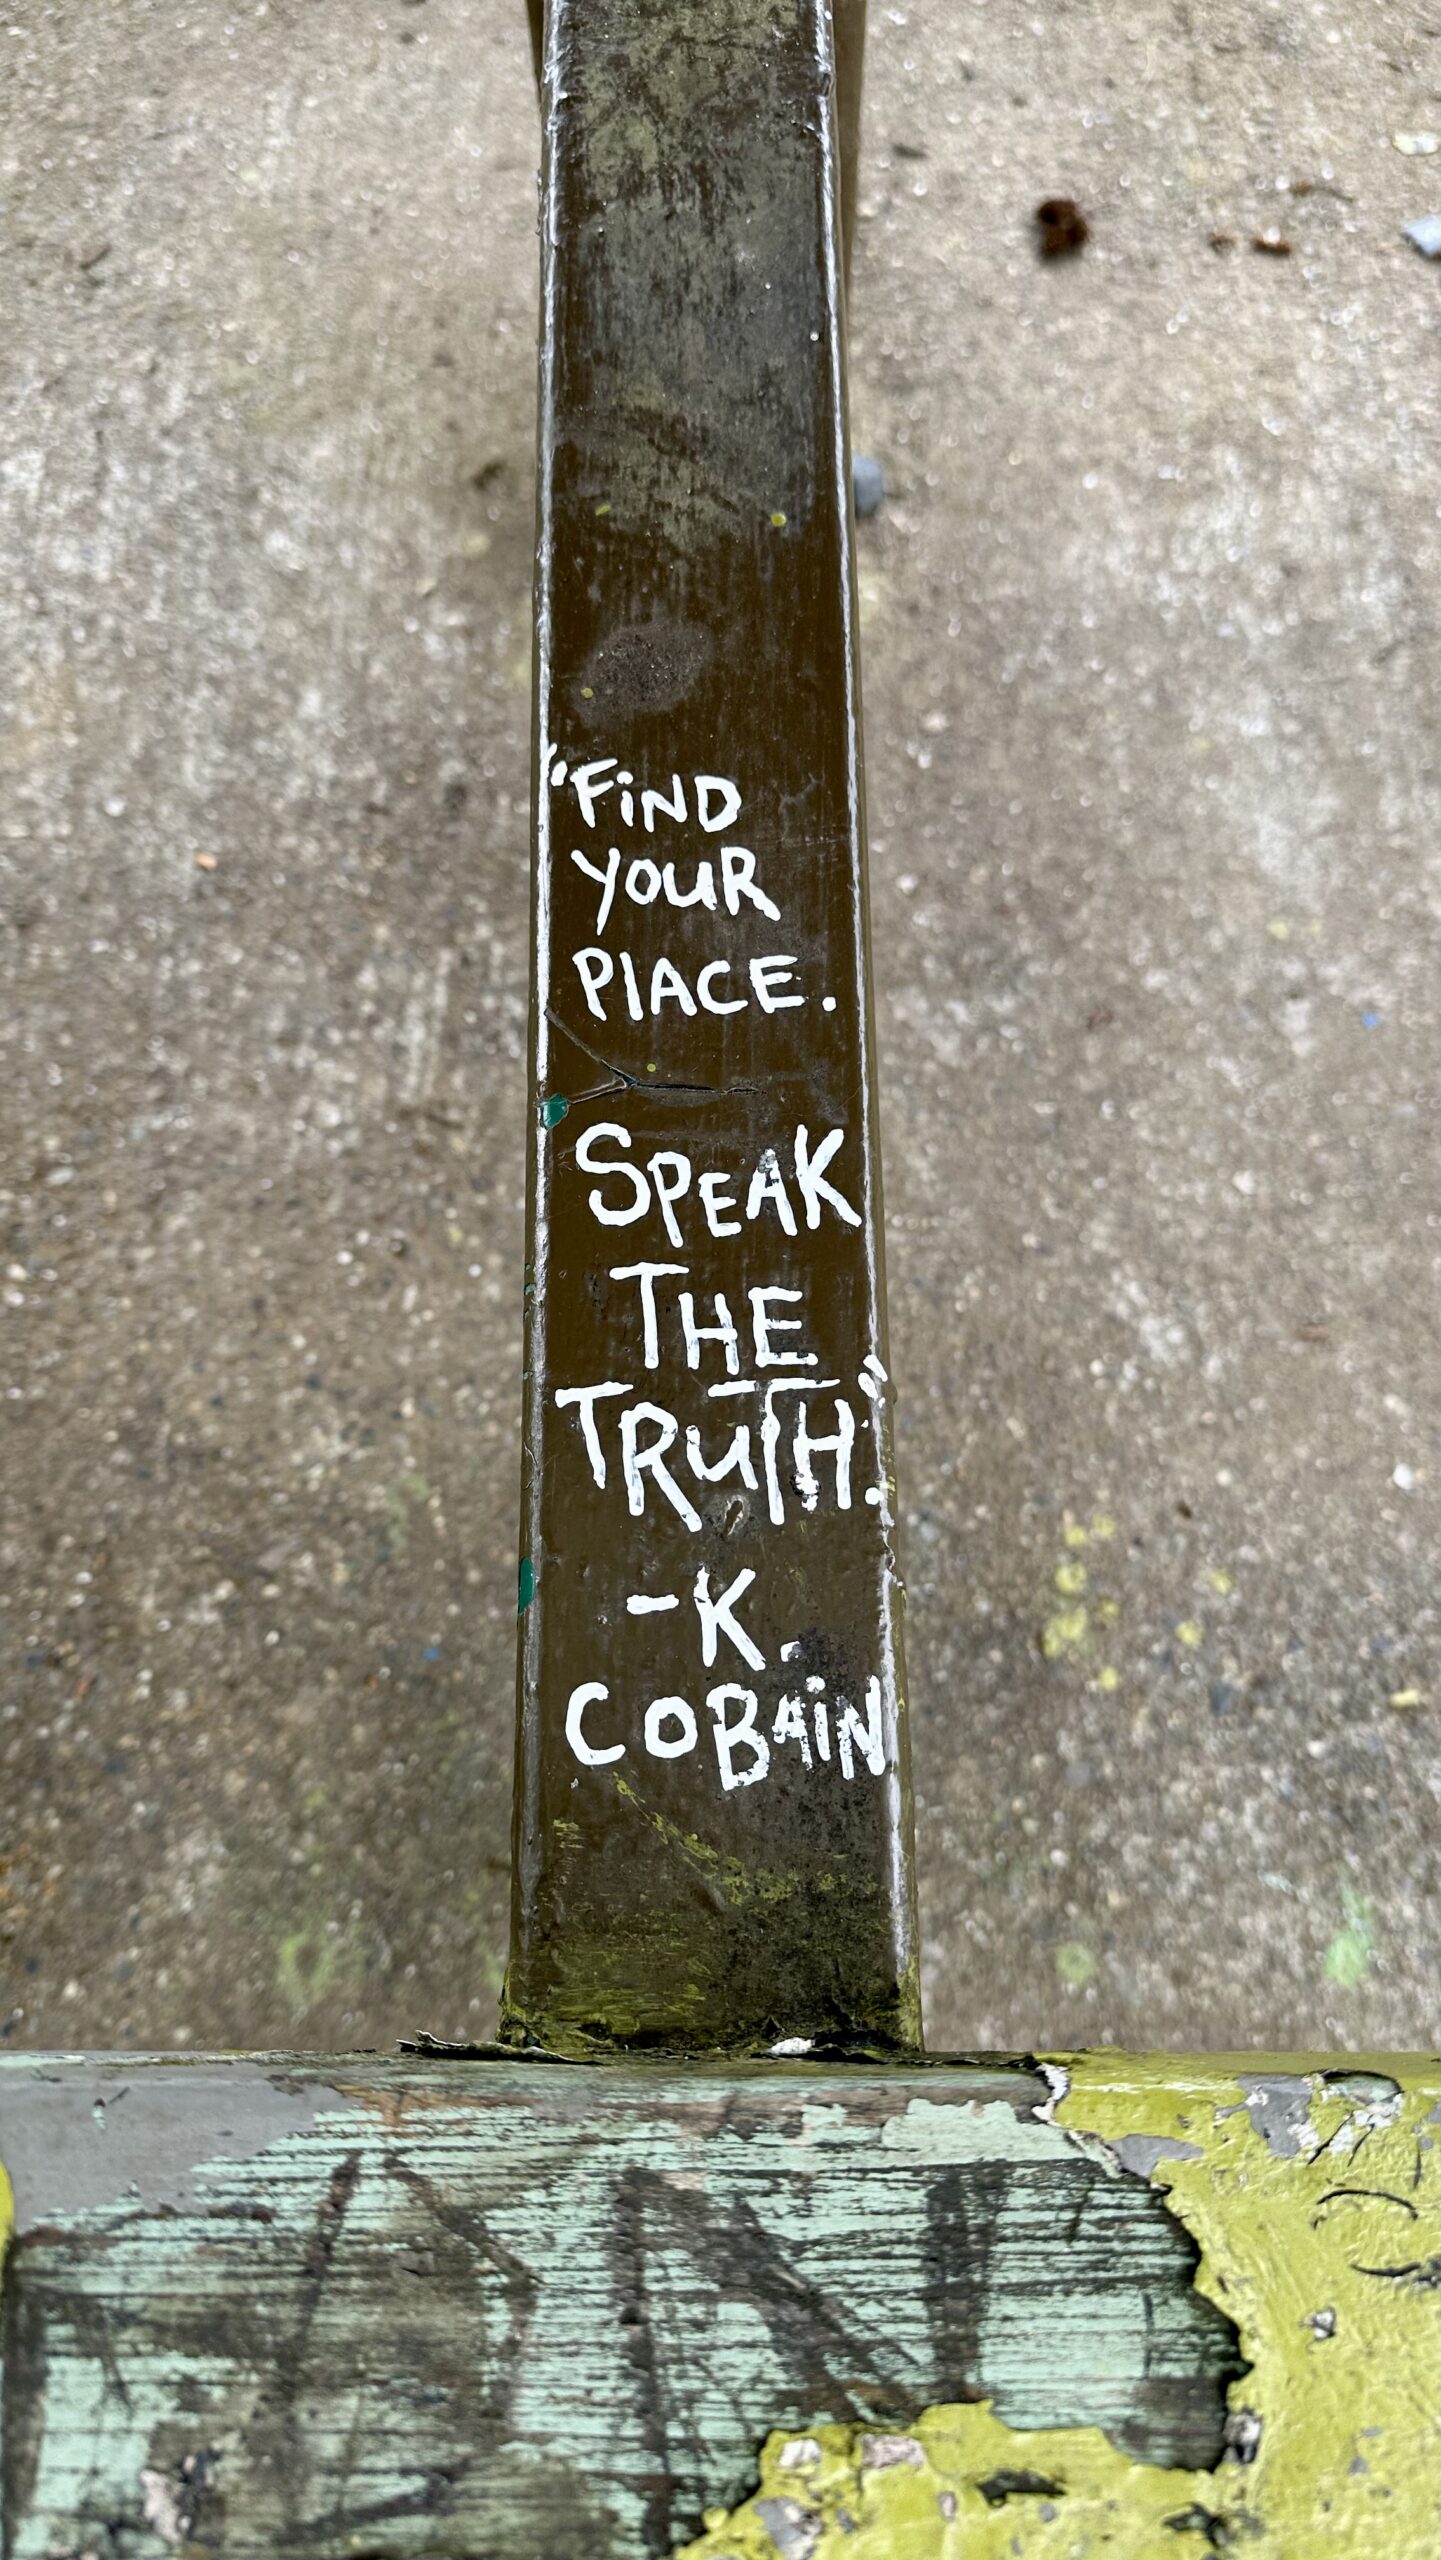 "FiND
YOUR
PlACE.
SPEAK
THE
TRUTH."
-K.
COBAiN